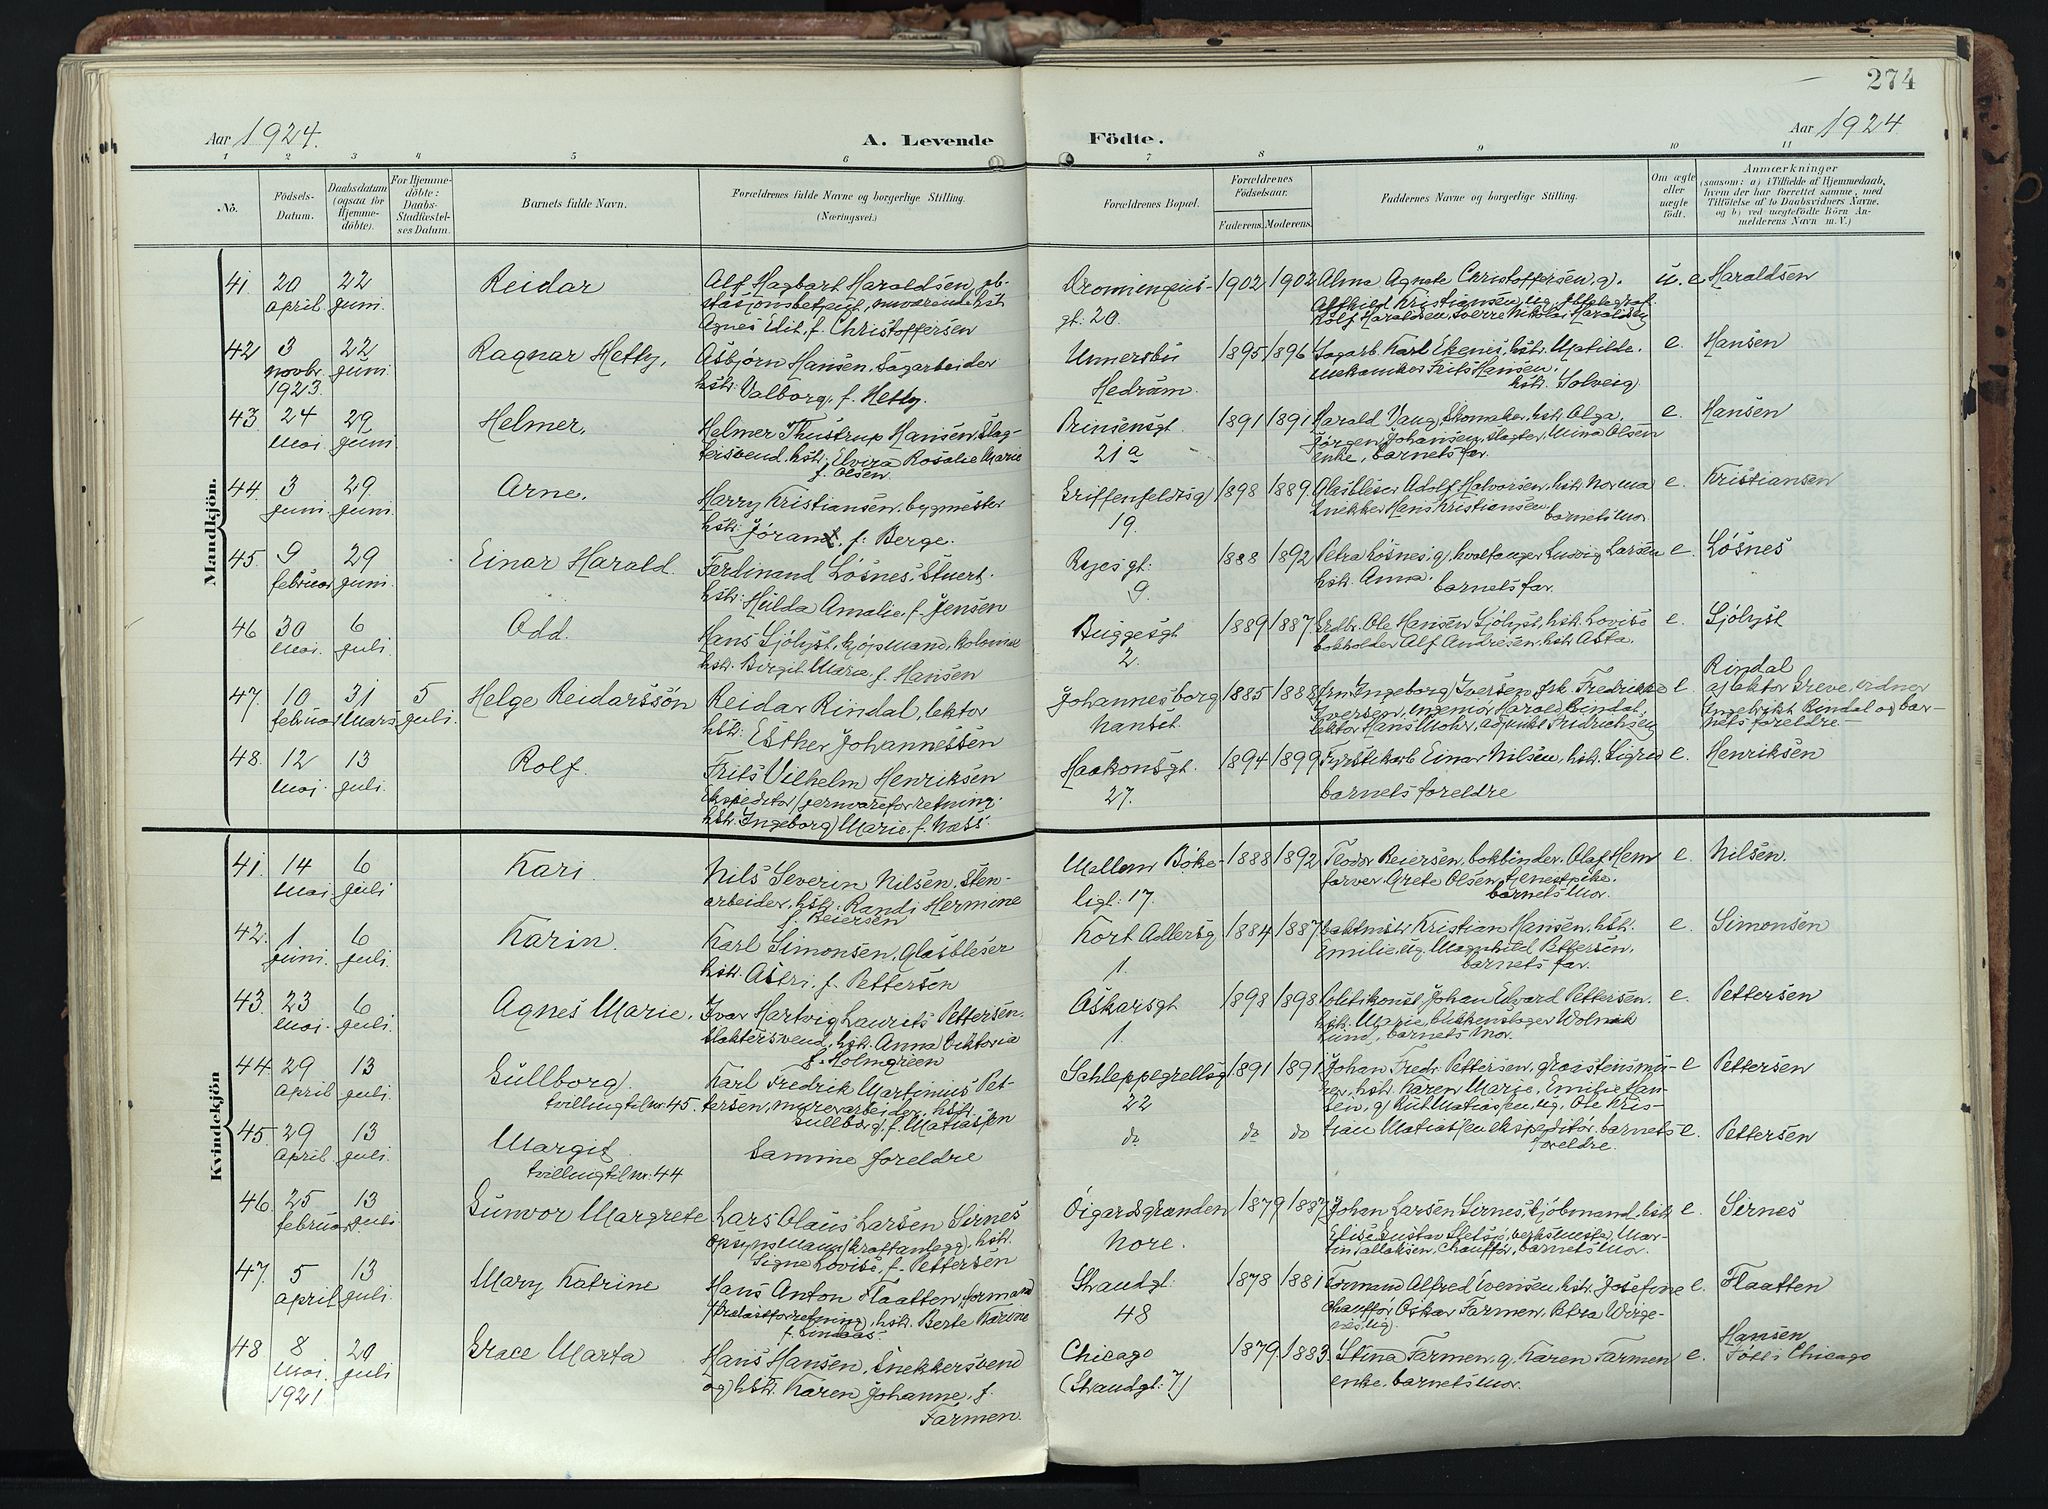 274
Aar 1924.
A. Levende
Födte.
Aar 1924
1 2 3 4 5 6 7 8 9 10 11
No.
Födsels-Datum.
Daabsdatum (ogsaa for Hjemmedöbte).
For Hjemmedöbte: Daabs-Stadfæstelses Datum.
Barnets fulde Navn.
Forældrenes fulde Navne og borgerlige Stilling. (Næringsvei.)
Forældrenes Bopæl.
Forældrenes Födselsaar.
Faderens. Moderens.
Faddernes Navne og borgerlige Stilling.
Om ægte eller uægte födt.
Anmærkninger
(saasom: a) i Tilfælde af Hjemmedaab, hvem der har forrettet samme, med Tilföielse af to Daabsvidners Navne, og b) ved uægtefödte Börn Anmelderens Navn m. V.)
Mandkjön.
41 20 april. 22 juni. Reidar
Alf Hagbart Haraldsen,
Agnes Edit, f. Christoffersen
gt. 20. 1902 1902
Alma Agnete Christoffersen, g.
Rolf Haraldsen, Sverre Nikolai Haraldsen
u. e Haraldsen
42 3 novbr. 1923. 22 juni. Ragnar Hetty,
Asbjørn Hansen, Sagarbeider
hstr. Valborg, f. Hetty.
Hedrum. 1895 1896
Sagarb. Karl Ekenes, hstr. Matilde.
mekaniker Frits Hansen,
hstr. Solveig.
e. Hansen
43 24 mai. 29 juni. Helmer.
Helmer Thustrup Hansen, Slag-
tersvend, hstr. Elvira Rosalie Marie
f. Olsen.
Prinsensgt. 21a 1891 1891
Harald Vaug, Skomaker, hstr. Olga,
Jørgen Johansen, slagter, Mina Olsen
enke, barnets far.
e. Hansen
44. 3 juni. 29 juni. Arne.
Harry Kristiansen, bygmester
hstr. Jøran, f. Berge.
Griffenfeldtsg 19. 1898 1889
Glasbleser Adolf Halvorsen, hstr. Norma
Snekker Hans Kristiansen,
barnets mor.
e. Kristiansen
45. 9 februar 29 juni. Einar Harald.
Ferdinand Løsnes, Stuert.
hstr. Hilda Amalie, f. Jensen
9. 1888 1892
Petra Løsnes, g, hvalfanger Ludvig Larsen
hstr. Anna.
barnets far.
e. Løsnes
46 30 mai. 6 juli. Odd.
Hans Sjølyst, kjøpmand, kolonial
hstr. Birgit Marie, f. Hansen
Buggesgt 2. 1889 1887
Ole Hansen Sjølyst, hstr. Lovise
bokholder Alf Andresen, hstr. Asta.
e. Sjølyst
47. 10 februar 31 Mars 5 juli. Helge Reidarssøn
Reidar Rindal, lektor
hstr. Esther Johannessen
Johannesborg Nanset. 1885 1888
Frn Ingeborg Iversen, frk Fredrikke
Iversen, Ingeniør Harald Rindal,
lektor Hans Mohr, adjunkt Fridrichsen
e. Rindal
a) lektor Greve, vidner
Ingebrikt Rindal og bar-
nets foreldre.
48. 12 mai. 13 juli. Rolf.
Frits Vilhelm Henriksen
Ekspeditør /jernvareforretning.
hstr. Ingeborg Marie, f. Næss.
Haakonsgt. 27. 1894 1899
Fyrstikarb Einar Nilsen, hstr. Sigrid
barnets foreldre
e. Henriksen
Kvindekjön
41. 14 mai. 6 juli Kari
Nils Severin Nilsen, Sten-
arbeider, hstr. Randi Hermine
f. Beiersen
Mellom Bøke-
ligt. 17. 1888 1892
Teodor Beiersen, bokbinder, Olaf Hem
farver, Grete Olsen, tjenestpike.
barnets mor.
e. Nilsen.
42. 1 juni. 6 juli. Karin.
Karl Simonsen, Glasbleser
hstr. Astri, f. Pettersen
Kort Adlersg 1. 1884 1887
Kristian Hansen, hstr.
Emilie, ug. Magnhild Pettersen,
barnets far.
e. Simonsen
43. 23 mai. 6 juli. Agnes Marie.
Ivar Hartvig Laurits Pettersen,
slaktersvend, hstr. Anna Viktoria
f. Holmgreen
Oskarsgt 1. 1898 1898
Politikonst Johan Edvard Pettersen,
hstr. Marie, blikkenslager
Lund, barnets mor.
e. Pettersen
44. 29 april 13 juli. Gullborg.
tvilling til nr. 45.
Karl Fredrik Martinius Pet-
tersen, murerarbeider, hstr.
Gullborg, f. Matiassen
Schleppegrellsg 22 1891 1891
Johan Fredr Pettersen,
hstr. Karen Marie, Emilie Han-
sen, g, Rut Matiassen ug, Ole Kris-
e Pettersen
45. 29 april. 13 juli. Margit
tvilling til nr. 44
Samme foreldre
do do do
tian Matiassen ekspeditør, barnets
foreldre.
e. Pettersen
46. 25 februar 13 juli Gunvor Margrete
Lars Olaus Larsen Sirnes
opsynsmann /kraftanlegg), hstr.
Signe Lovise, f. Pettersen
Øigardsgrænden
Nore. 1879 1887
Johan Larsen Sirnes, kjøbmand, hstr
Elise, Gustav Sletsjø, verksmester, Mar-
tin Tallaksen, Chauffør, barnets mor.
e. Sirnes
47. 5 april 13 juli. Mary Katrine
Hans Anton Flaatten, formand
hstr. Berte Karine
f. Lindaas
Strandgt. 48 1878 1881
Formand Alfred Evensen, hstr. Josefine
chauffør Oskar Farmen, Petra
e. Flaatten
48 8 mai. 1921 20 juli Grace Marta
Hans Hansen, Snekkersvend
og hstr. Karen Johanne, f.
Farmen.
Chicago
(Strandgt. 7) 1879 1883
Stina Farmen, g, Karen Farmen
enke, barnets mor.
e. Hansen
Født i Chicago